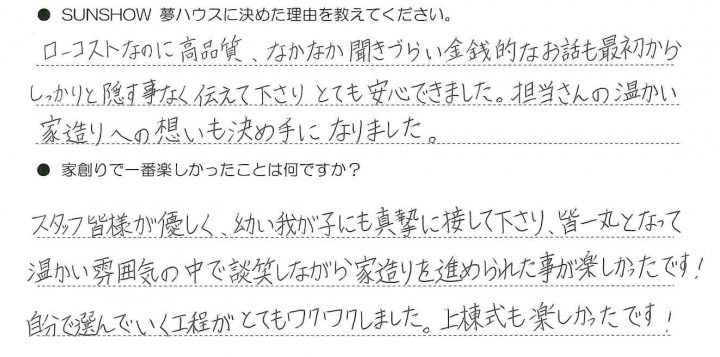 ● SUNSHOW 夢ハウスに決めた理由を教えてください。
ローコストなのに高品質、なかなか聞きづらい金銭的なお話も最初から
しっかりと隠す事なく伝えて下さり とても安心できました。担当さんの温かい
家造りへの想いも決め手になりました。
● 家創りで一番楽しかったことは何ですか？
スタッフ皆様が優しく、幼い我が子にも真摯に接して下さり、皆一丸となって
温かい雰囲気の中で談笑しながら家造りを進められた事が楽しかったです！
自分で選んでいく工程がとてもワクワクしました。上棟式も楽しかったです！